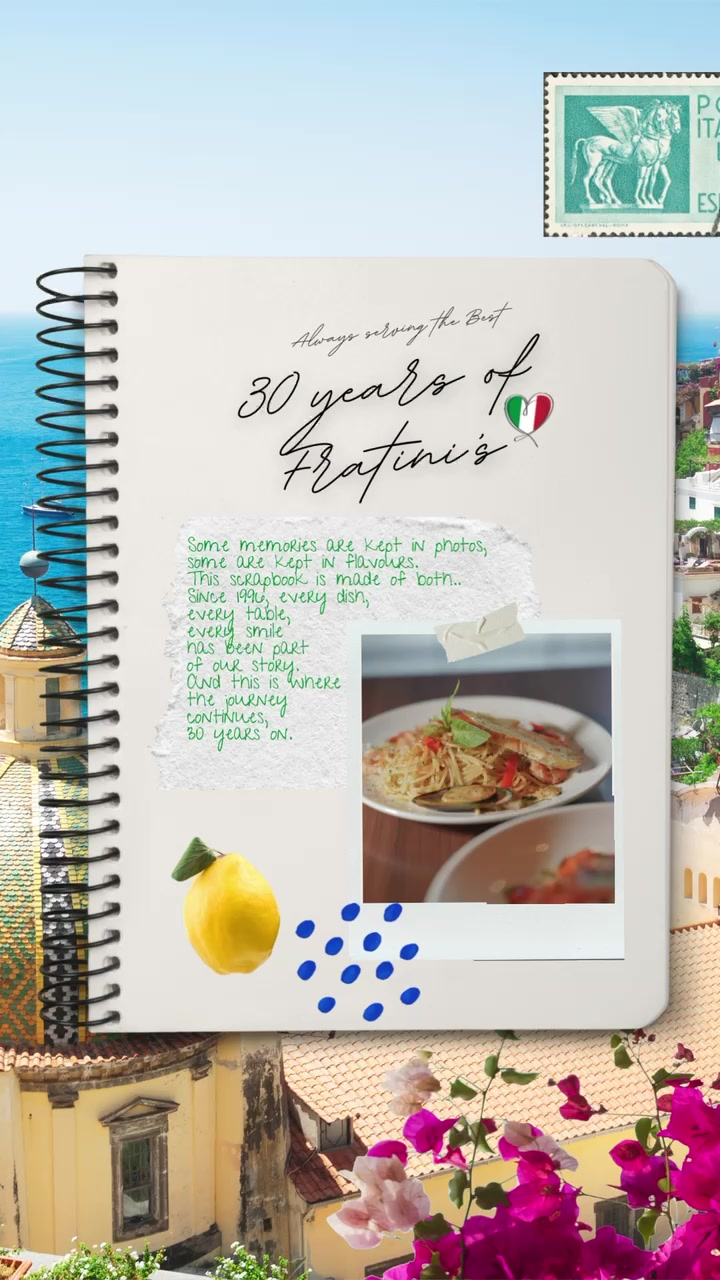 PO
ITA
ESP
Always serving the Best
30 years of
Fratini's
Some memories are kept in photos,
some are kept in flavours.
This scrapbook is made of both..
Since 1996, every dish,
every table,
every smile
has been part
of our story.
And this is where
the journey
continues,
30 years on.